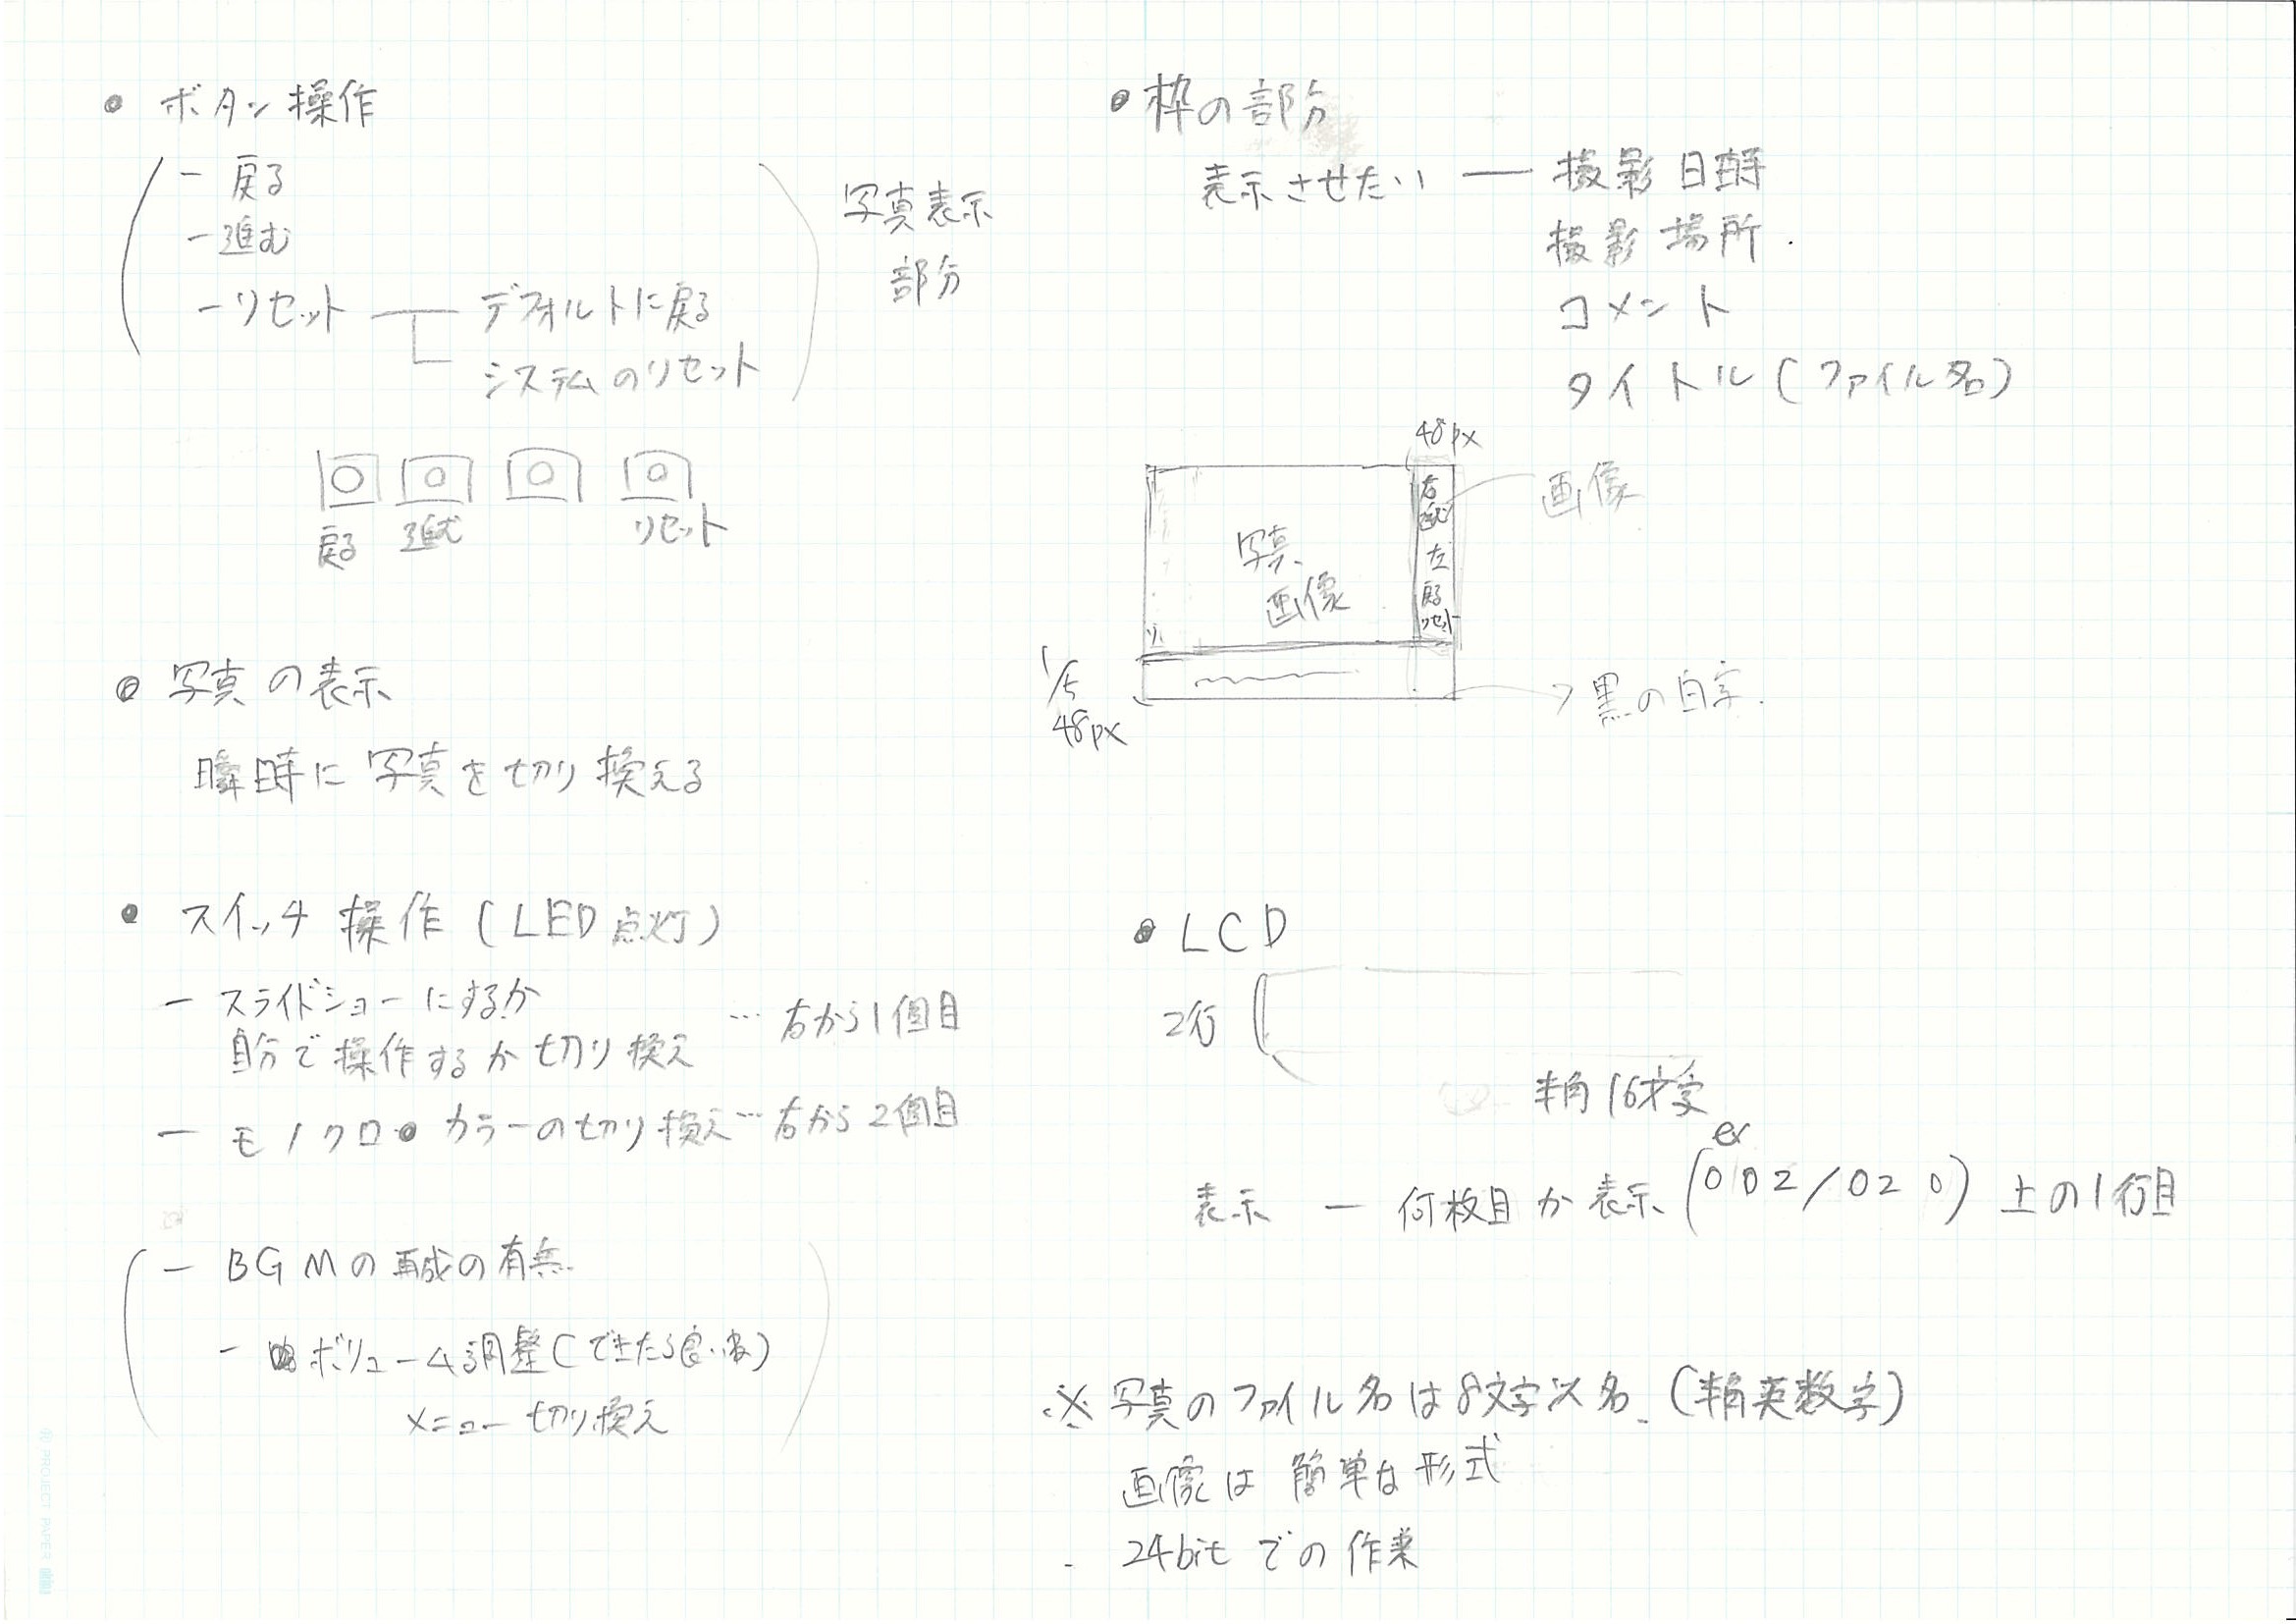 ● ボタン操作
- 戻る
- 進む
- リセット
デフォルトに戻る
システムのリセット
写真表示
部分
戻る 進む リセット
● 写真の表示
瞬時に写真を切り換える
● スイッチ操作(LED点灯)
- スライドショーにするか
自分で操作するか切り換え … 右から1個目
- モノクロ●カラーの切り換え … 右から2個目
- BGMの再成の有無
- ボリューム調整(できたら良い)
メニュー切り換え
● 枠の部分
表示させたい — 撮影日時
撮影場所.
コメント
タイトル(ファイル名)
48px
画像
写真
画像
右
進む
左
戻る
リセット
1/5
48px
黒の白字.
● LCD
2行
半角16文字
ex
表示 — 何枚目か表示(002/020) 上の1行目
※ 写真のファイル名は8文字以名.(半角英数字)
画像は簡単な形式
. 24bitでの作業
PROJECT PAPER